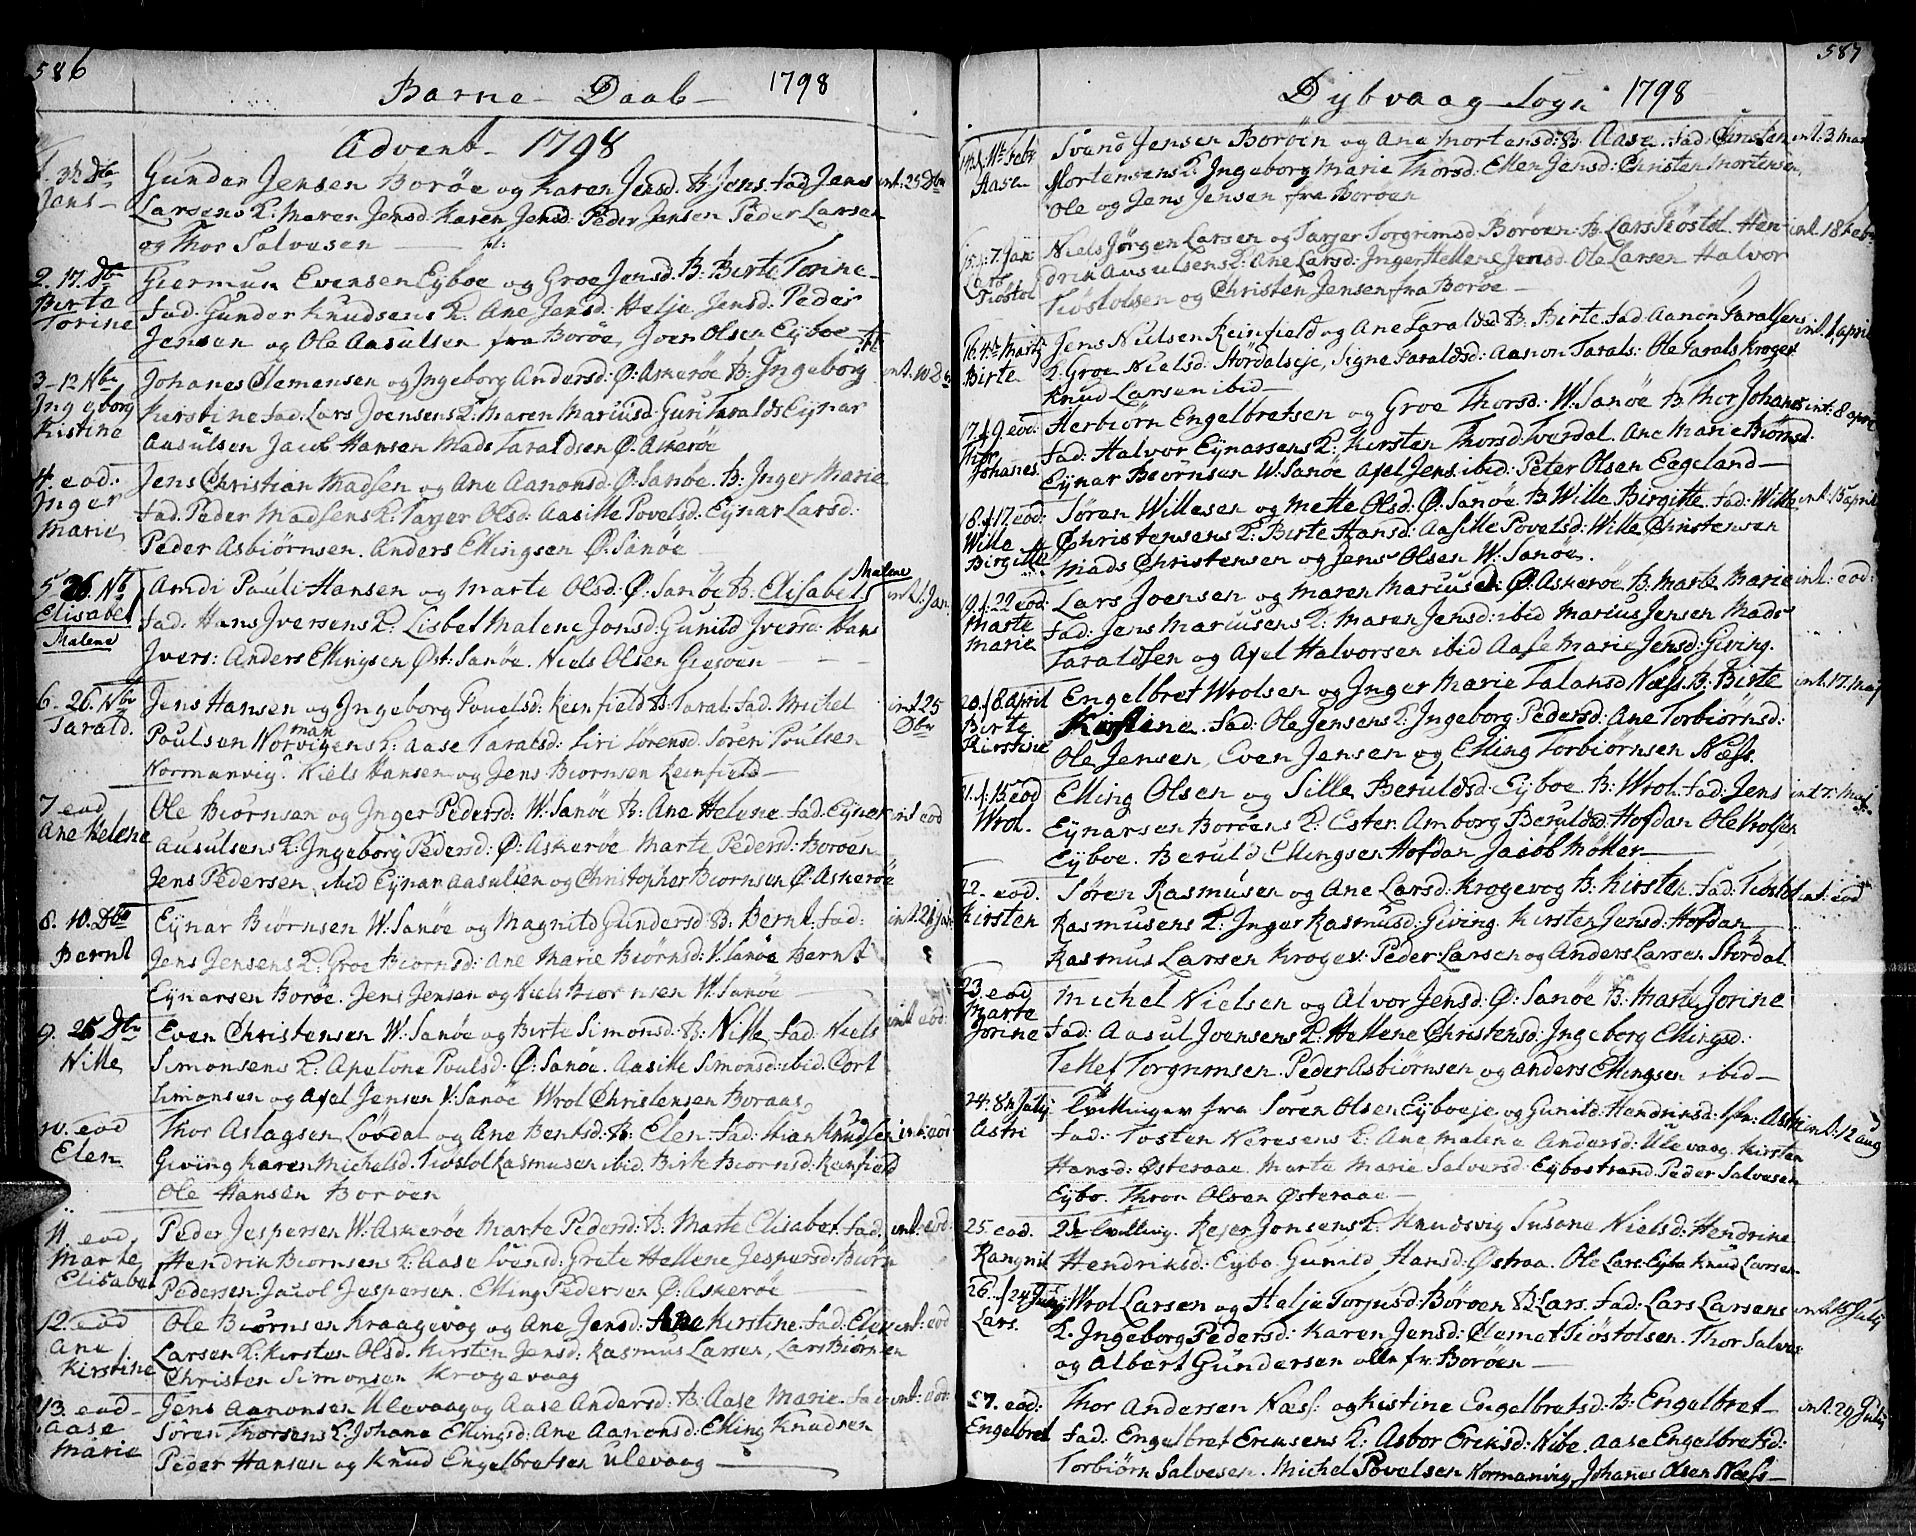 586
Barne-Daab 1798
Advent 1798
1. 3die Dbr
Jens
Gunder Jensen Borøe og Karen Jensd: B: Jens. fad: Jens
int: 25 Dbr
Larsens K: Maren Jensd: Karen Jensd: Peder Jensen Peder Larsen
og Thor Salvesen
2. 17. Dbr
Birte
Torine
Giermun Evensen Eyboe og Groe Jensd: B: Birte Torine
fad: Gunder Knudsens K: Ane Jensd: Helje Jensd: Peder
Jensen og Ole Aasulsen fra Borøe, Joen Olsen Eyboe
3. 12 Nbr
Ingeborg
Kistine
Johanes Clemensen og Ingeborg Andersd: Ø: Askerøe B: Ingeborg
int. 10 Dbr
Kirstine fad: Lars Joensens K: Maren Mariusd: Guri Taralds Eynar
Aasulsen Jacob Hansen Mads Taraldsen Ø: Askerøe
4. eod:
Inger
Marie
Jens Christian Madsen og Ane Aanonsd: Ø: Sanøe B: Inger Marie
fad: Peder Madsens K: Tarjer Olsd: Aasille Povelsd: Eynar Larsd:
Peder Asbiørnsen. Anders Ellingsen Ø: Sanøe
5. 26. Nb
Elisabet
Malene
Amdi Pauli Hansen og Marte Olsd: Ø: Sanøe B: Elisabeth Malene
int. 1. Jan.
fad: Hans Iversens K: Lisbet Malene Jonsd: Gunild Iversd: Hans
Ivers: Anders Ellingsen Øst: Sanøe. Niels Olsen Giesøen
6. 26. Nbr
Tarald.
Jens Hansen og Ingeborg Povelsd: Reinfield B: Taral. fad: Michel
int 25 Dbr
Poulsen Norman vigens K: Aase Taralsd: Siri Sørensd: Søren Poulsen
Normanvig. Niels Hansen og Jens Biørnsen Reinfield
7. eod
Ane Helene
Ole Biørnsen og Inger Pedersd: W: Sanøe B: Ane Helene fad: Eynar
int eod
Aasulsens K: Ingeborg Pedersd: Ø: Askerøe Marte Pedersd: Borøen
Jens Pedersen, ibid Eynar Aasulsen og Christopher Biørnsen Ø: Askerøe
8. 10. Dbr
Bernt
Eynar Biørnsen W: Sanøe og Magnild Gundersd: B: Bernt. fad:
int. 21 Jan
Jens Jensens K: Groe Biørnsd: Ane Marie Biørnsd: V: Sanøe Bernt
Eynarsen Borøe. Jens Jensen og Niels Biørnsen W: Sanøe
9. 25 Dbr
Nille
Even Christensen W: Sanøe og Birte Simonsd: B: Nille fad: Niels
int eod:
Simonsens K: Apelone Poulsd: Ø: Sanøe. Aasille Simonsd: ibid: Cort
Simonsen og Axel Jensen V: Sanøe Wrol Christensen Boraas
10. eod
Elen
Thor Aslagsen Lövdal og Ane Bentsd: B: Elen. fad: Stian Knudsen
int: eod
Giving Karen Michelsd. Tiøstol Rasmusen ibid. Birte Biørnsd: Reinfield
Ole Hansen Borøen
11. eod
Marte
Elisabet
Peder Jespersen W: Askerøe Marte Pedersd: B: Marte Elisabet fad:
int: eod:
Hendrik Biørnsens K: Aase Svensd: Grete Hellene Jespersd: Biørn
Pedersen Jacob Jespersen. Elling Pedersen Ø: Askerøe
12. eod
Ane
Kirstine
Ole Biørnsen Kraagevog og Ane Jensd: Ane Kirstine. fad: Elen
int: eod
Larsen K: Kirsten Olsd. Kirstin Jensd: Rasmus Larsen, Lars Biørnsen
Christen Simonsen Krogevaag
13. eod
Aase
Marie
Jens Aanonsen Ulevaag og Aase Andersd: B: Aase Marie. fad:
int: eod:
Søren Thorsens K: Johane Ellingsd: Ane Aanonsd: Elling Knudsen
Peder Hansen og Knud Engelbretsen Ulevaag
587
Dybvaag Sogn 1798
14. 11te Febr
Aase
Svend Jensen Borøen og Ane Mortensd: B: Aase. fad: Christen
int. 3 Mar
Mortensens K: Ingeborg Marie Thorsd: Ellen Jensd: Christen Mortensen,
Ole og Jens Jensen fra Borøen
15. 7. Jan
Lars
Tiøstol
Niels Jørgen Larsen og Tarjer Torgrimsd: Borøen B: Lars Tiøstol. Hen-
int. 18 Febr
drik Aasulsens K: Ane Larsd: Inger Hellene Jensd: Ole Larsen Halvor
Tiøstolsen og Christen Jensen fra Borøe
16. 4de Martz
Birte
Jens Nielsen Reinfield og Ane Taraldsd B: Birte fad: Aanon Taralsens
int. 1 april
K: Groe Nielsd: Stördalseje, Signe Taraldsd: Aanon Tarals: Ole Tarals Kroger
Knud Larsen ibid
17. 9. eod:
Thor
Johanes
Herbiørn Engelbretsen og Groe Thorsd: W: Sanøe B: Thor Johanes
int: 8 april
fad: Halvor Eynarsens K: Kirsten Thorsd: Tverdal. Ane Marie Biørnsd:
Eynar Biørnsen W: Sanøe Axel Jens: ibid: Peter Olsen Egeland
18. 17. eod:
Wille
Birgitte
Søren Willesen og Mette Olsd: Ø: Sanøe B: Wille Birgitte fad: Wille
int. 15 april
Christensens K: Birte Hansd: Aasille Povelsd: Wille Christensen
Mads Christensen og Jens Olsen W: Sanøe.
19. 22 eod:
Marte
Marie
Lars Joensen og Maren Mariusd: Ø: Askerøe B: Marte Marie
int: eod:
fad: Jens Mariusens K: Maren Jensd: ibid Marius Jensen Mads
Taraldsen og Axel Halvorsen ibid Aase Marie Jensd: Giving.
20. 8. april
Birte
Kirstine
Engelbret Wrolsen og Inger Marie Talaksd Næss. B: Birte
int. 17. Maj
Kirstine. fad: Ole Jensens K: Ingeborg Pedersd: Ane Torbiørnsd:
Ole Jensen, Even Jensen og Elling Torbiørnsen Næss.
21. 15 eod
Wrol.
Elling Olsen og Sille Beruldsd: Eyboe B: Wrol. fad: Jens
int 7. Maj
Eynarsen Borøens K: Ester. Amborg Beruldsd: Hofdan Ole Wrolsen
Eyboe. Beruld Ellingsen Hofdan Jacob Møller
22. eod
Kirsten
Søren Rasmusen og Ane Larsd: Krogevog B: Kirsten fad: Tiøstol
int: eod
Rasmusens K: Inger Rasmusd: Giving Kirsten Jensd: Hofdan
Rasmus Larsen Krogev: Peder Larsen og Anders Larsen Stördal
23. eod
Marte
Jorine
Michel Nielsen og Alvor Jensd: Ø: Sanøe B: Marte Jorine
fad: Aasul Joensens K: Hellene Christensd: Ingeborg Ellingsd:
Tellef Torgrimsen. Peder Asbiørnsen og Anders Ellingsen ibid
24. 8de July
Astri
Tvillinger fra Søren Olsen Eyboeje og Gunild Hendriksd: 1ste: Astri
int: 12 aug
fad: Tosten Neresens K: Ane Malene Andersd: Ulevaag. Kirsten
Hansd: Østeraae. Marte Marie Salvesd: Eybostrand. Peder Salvesen
Eybo. Thron Olsen Østeraae
25. eod.
Rangnil
2de tvilling. Rejer Jonsens K: Knudsvig Susane Nielsd: Hendrine
Hendriksd: Eybo. Gunild Hansd: Østraa. Ole Lars: Eybo Knud Larsen
26. 24 July
Lars.
Wrol Larsen og Helje Torjusd: Borøen B: Lars. fad: Lars Larsens
int. 15 July
K. Ingeborg Pedersd: Karen Jensd: Clemet Tiøstolsen. Thor Salves
og Albert Gundersen alle fr: Borøen
27. eod:
Engelbret
Thor Andersen Næss: og Kistine Engelbretsd: B: Engelbret
int. 29 July
fad: Engelbret Eriksens K: Asbor Eriksd: Nibe. Aase Engelbretsd:
Torbiørn Salvesen. Michel Povelsen Normanvig, Johanes Olsen Næss